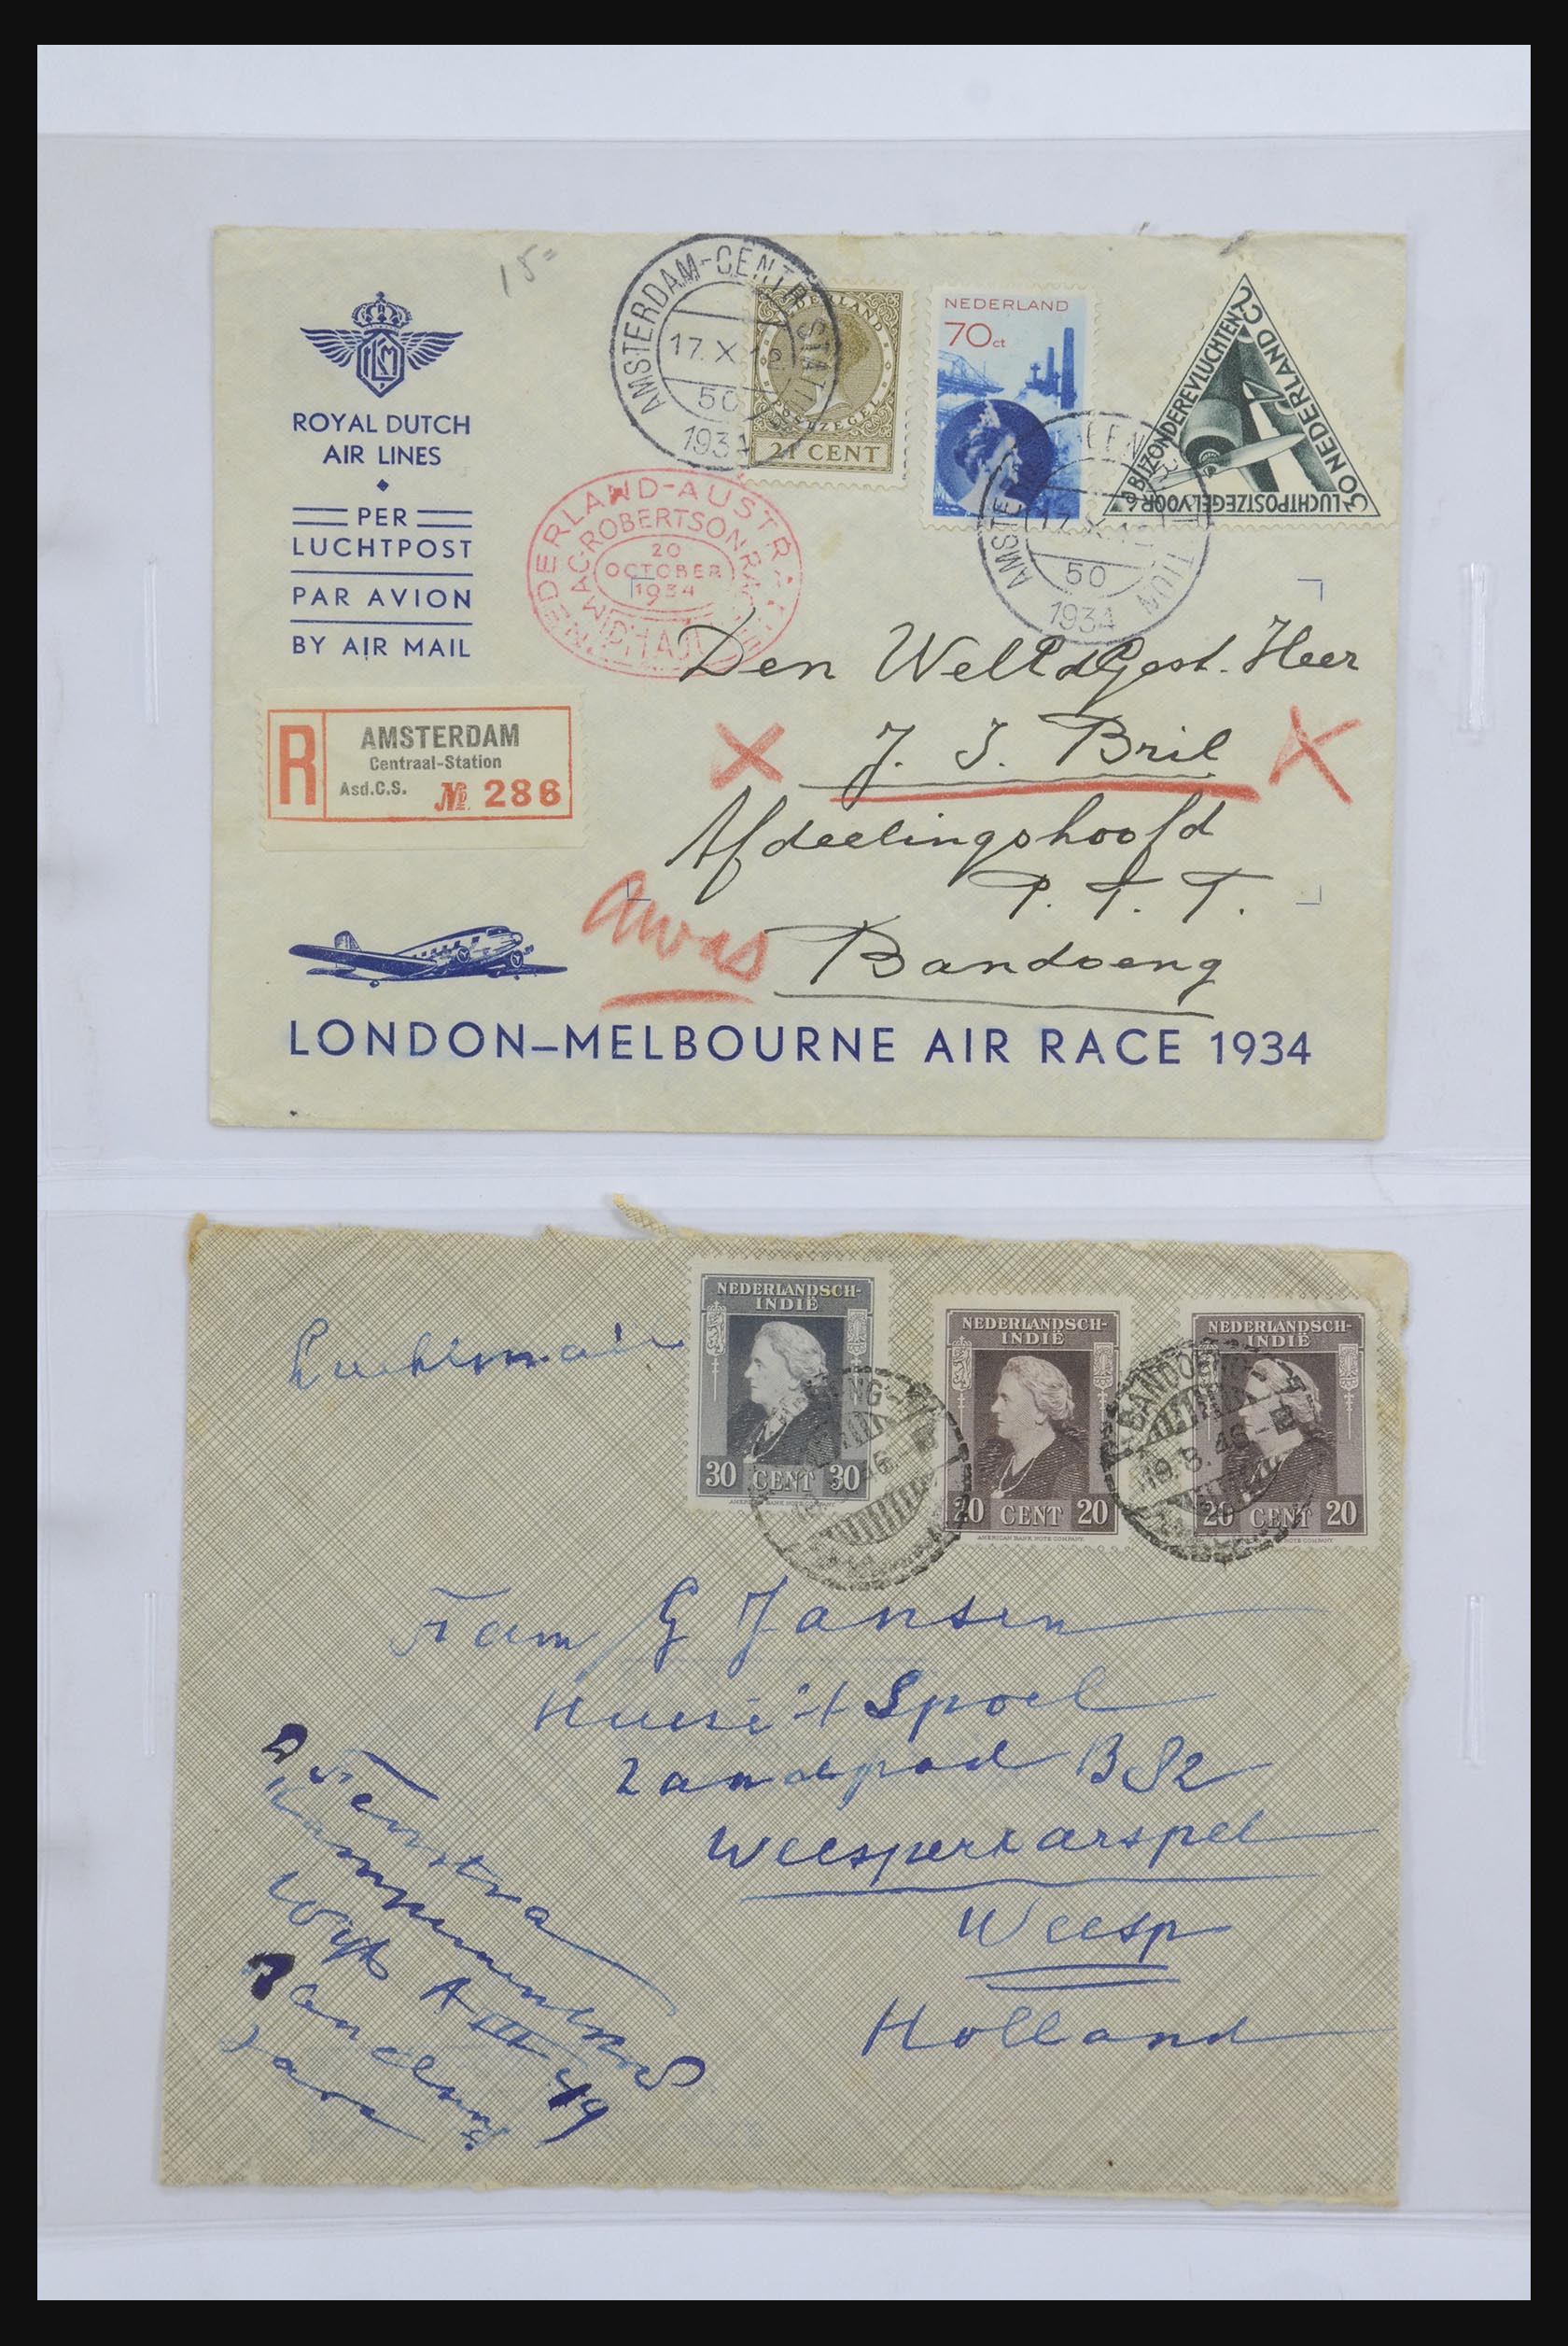 15=
KLM
ROYAL DUTCH
AIR LINES
PER
LUCHTPOST
PAR AVION
BY AIR MAIL
AMSTERDAM-CENTR. STATION
17. X 12
50
1934
NEDERLAND
POSTZEGEL
21 CENT
NEDERLAND
70ct
AMSTERDAM-CENTR. STATION
17. X 12
50
1934
BIJZONDERE VLUCHTEN
NEDERLAND C
30
LUCHTPOSTZEGEL VOOR
NEDERLAND-AUSTRALIE
MAC. ROBERTSON RACE
20
OCTOBER
1934
R
AMSTERDAM
Centraal-Station
Asd.C.S. № 286
Den WelEdGest. Heer
J. J. Bril
Afdeelingshoofd
P. T. T.
awas
Bandoeng
LONDON–MELBOURNE AIR RACE 1934
NEDERLANDSCH-
INDIË
30 CENT 30
AMERICAN BANK NOTE COMPANY
NEDERLANDSCH-
INDIË
20 CENT 20
AMERICAN BANK NOTE COMPANY
NEDERLANDSCH-
INDIË
20 CENT 20
BANDOENG
19.8.46
Fam G Jansen
Huize 't Spoel
Zandpad B 82
Weesperkarspel
Weesp
Holland
Feenstra
Wijk A III 49
Bandung
Java